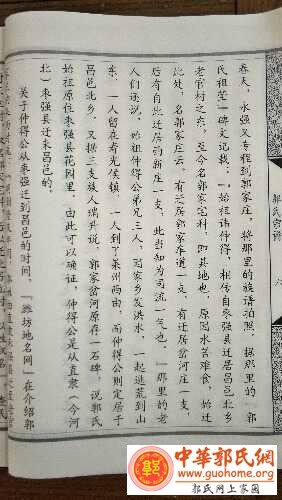 春天，永强又专程到郭家庄，将那里的族谱拍照。据那里的「郭
氏祖茔」碑文记载：「始祖讳仲得，相传自枣强县迁居昌邑北乡
老官村之东，至今名郭家宅科，即其地也，原因水苦难食，始迁
此处，名郭家庄云。有迁居郭家车道一支，有迁居岔河庄一支，
后者有自此迁居的新庄一支，此当知为司流一气也。」那里的老
人们还说，仲得公弟兄三人，因家乡发洪水，一起逃荒到山
东，一人留在寿光侯镇，一人到了莱州西由，而仲得公则定居于
昌邑北乡。又据三支族人瑞升说，郭家岔河原存一石碑，说郭氏
始祖原住枣强县花园里。由此可以确证，仲得公是从直隶（今河
北）枣强县迁来昌邑的。
关于仲得公从枣强迁到昌邑的时间，『潍坊地名网』在介绍郭
郭氏宗谱
六
中華郭氏網
www.guohome.org
郭氏网上家园